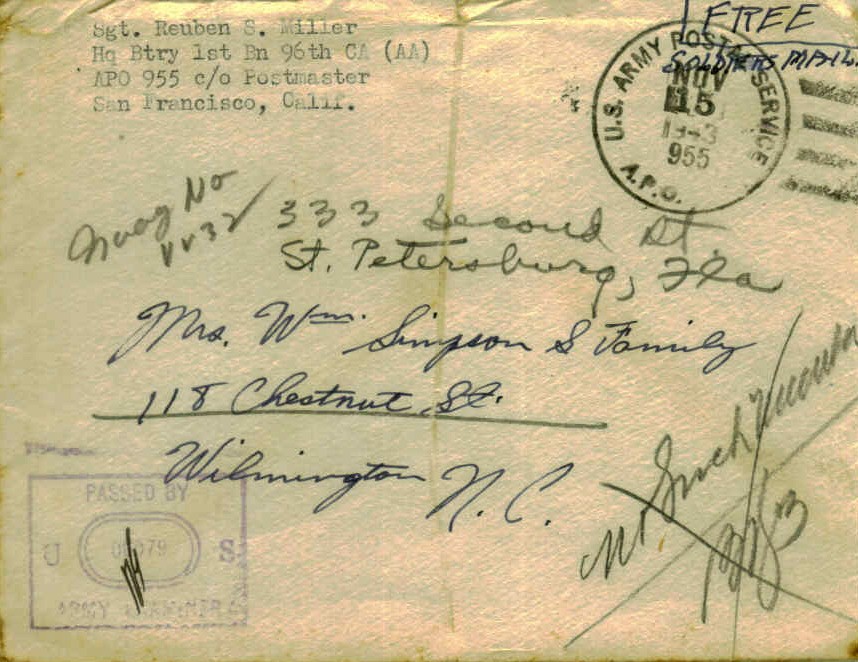 Sgt. Reuben S. Miller
Hq Btry 1st Bn 96th CA (AA)
APO 955 c/o Postmaster
San Francisco, Calif.
FREE
SOLDIERS MAIL
U.S. ARMY POSTAL SERVICE
NOV
15
1943
955
A.P.O.
No
333 Second St.
St. Petersburg, Fla
Mrs. Wm. Simpson & Family
118 Chestnut St.
Wilmington N. C.
PASSED BY
U S
ARMY EXAMINER
No Such Number